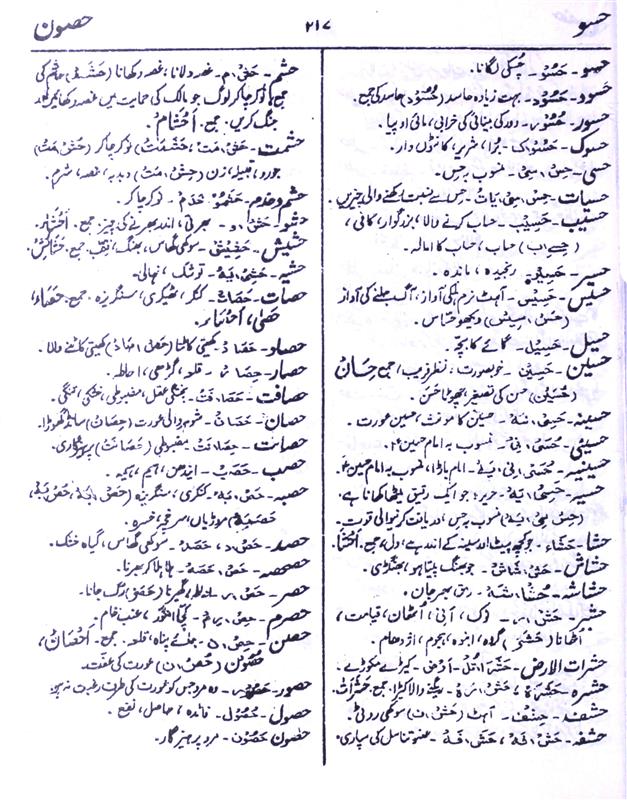 حسو ۲۱۷ حصون
حسو - حَسْوْ - چسکی لگانا.
حسود - حَسُوْد - بہت زیادہ حاسد (حُسُوْد) حاسد کی جمع.
حسور - حُسُوْر - دور کی بینائی کی خرابی،
حسوک - بُرا، شریر، کانٹوں دار.
حسی - حِسْ، سِیْ - منسوب بہ حِس.
حسیات - حِسْ، سِیْ، یَاتْ - حِس سے نسبت رکھنے والی چیزیں.
حسیب - حَسِیْب - حساب کرنے والا، بزرگوار، کافی،
(حِسے اب) حساب، حساب کا امالہ.
حسیر - حَسِیْر - رنجیدہ، ماندہ.
حسیس - حَسِیْس - آہٹ نرم ہلکی آواز، آگ جلنے کی آواز
دیکھو حساس.
حسیل - حَسِیْل - گائے کا بچہ.
حسین - حَسِیْن - خوبصورت، نظر فریب، جمع حِسَان
(حُسَیْن) حسن کی تصغیر، چھوٹا حسن.
حسینہ - حَسِیْ، نَہْ - حسین کا مونث، حسین عورت.
حسینی - حُسَیْ، نِیْ - منسوب بہ امام حسینؑ.
حسینیہ - حُسَیْ، نِیْ، یَہْ - امام باڑا، منسوب بہ امام حسینؑ.
حسیہ - حریرہ جو ایک رقیق میٹھا کھانا ہے.
(حِسْ، سِیْ، یَہْ) منسوب بہ حِس، دریافت کرنیوالی قوت.
حشا - حَشَاء - جو کچھ پیٹ اور سینہ کے اندر ہے، دل، جمع. اَحْشَا.
حشاش - حَشْ، شَاش - جو بھنگ پیتا ہو، بھنگڑی.
حشاشہ - حُشَا، شَہْ - رمق بھر جان.
حشر - حَشْ، ر - نوک، آنی، اُٹھان، قیامت،
اُٹھانا (حَشْر) گروہ، انبوہ، ہجوم، اژدھام.
حشرات الارض - کیڑے مکوڑے.
حشرہ - حَشَرَہ، حَشْ، رَہ - رینگنے والا کیڑا. جمع. حَشَرَات.
حشف - آہٹ سوکھی روٹی.
حشفہ - حَشْ، فَہْ، حَشَ، فَہْ - عضو تناسل کی سپاری.
حشم - حَشْ، م - غصہ دلانا، غصہ دکھانا (حَشَم) حاشم کی
جمع نوکر چاکر لوگ جو مالک کی حمایت میں غصہ دکھائیں اور
جنگ کریں. جمع. اَحْشَام.
حشمت - حَشْ، مَت، حَشَمَت) نوکر چاکر (حُشْ، مَت)
جورو، قبیلہ، زن (حِشْ، مَت) دبدبہ، غصہ، شرم.
حشم و خدم - نوکر چاکر.
حشو - حَشْ، و - بھرتی، اندر بھرنے کی چیز. جمع. اَحْشَاء.
حشیش - حَشِیْش - سوکھی گھاس، بھنگ،
حشیہ - حَشِیْ، یَہْ - توشک، نہالی.
حصات - حَصَات - کنکر، ٹھیکری، سنگریزہ. جمع. حَصَاء،
حَصٰی،
حصاد - حَصَاد - کھیتی کاٹنا کھیتی کاٹنے والا.
حصار - حِصَار - قلعہ، گڑھی، احاطہ.
حصافت - حَصَا، فَت - پختگی عقل، مضبوطی،
حصان - حَصَان - شوہر والی عورت (حِصَان) سانڈ گھوڑا.
حصانت - حِصَا، نَت مضبوطی (حَصَانَت) پرہیزگاری.
حصب - حَصَب - ایندھن،
حصبہ - حَصْ، بَہْ - کنکری، سنگریزہ (حَصْ، بَہْ، حَصَ، بَہ،
حَصِبَہ) موتڑیاں، سرخی، خسرہ.
حصد - حَصْ، د، حَصَد - سوکھی گھاس، گیاہ خشک.
حصحصہ - حَصْ، حَصَہْ - ہلا ہلا کر بھرنا.
حصر - حَصْ، ر - گھیرنا (حَصَر) رُک جانا.
حصرم - حِصْ، رِم - کچا انگور، عنب خام.
حصن - حِصْ، ن - جائے پناہ، قلعہ. جمع. اَحْصَان،
حُصُوْن (حُصْ، ن) عورت کی عفت.
حصور - حَصُوْر - وہ مرد جس کو عورت کی طرف رغبت نہ ہو.
حصول - حُصُوْل - فائدہ، حاصل، نفع.
حصون حَصُوْن - مرد پرہیزگار.